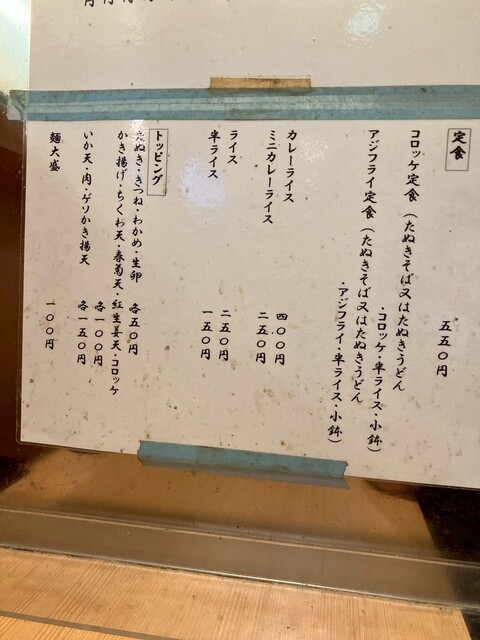 定食
五五〇円
コロッケ定食（たぬきそば又はたぬきうどん
・コロッケ・半ライス・小鉢）
アジフライ定食（たぬきそば又はたぬきうどん
・アジフライ・半ライス・小鉢）
カレーライス 四〇〇円
ミニカレーライス 二五〇円
ライス 二五〇円
半ライス 一五〇円
トッピング
たぬき・きつね・わかめ・生卵 各五〇円
かき揚げ・ちくわ天・春菊天・紅生姜天・コロッケ
各一〇〇円
いか天・肉・ゲソかき揚天 各一五〇円
麺大盛 一〇〇円